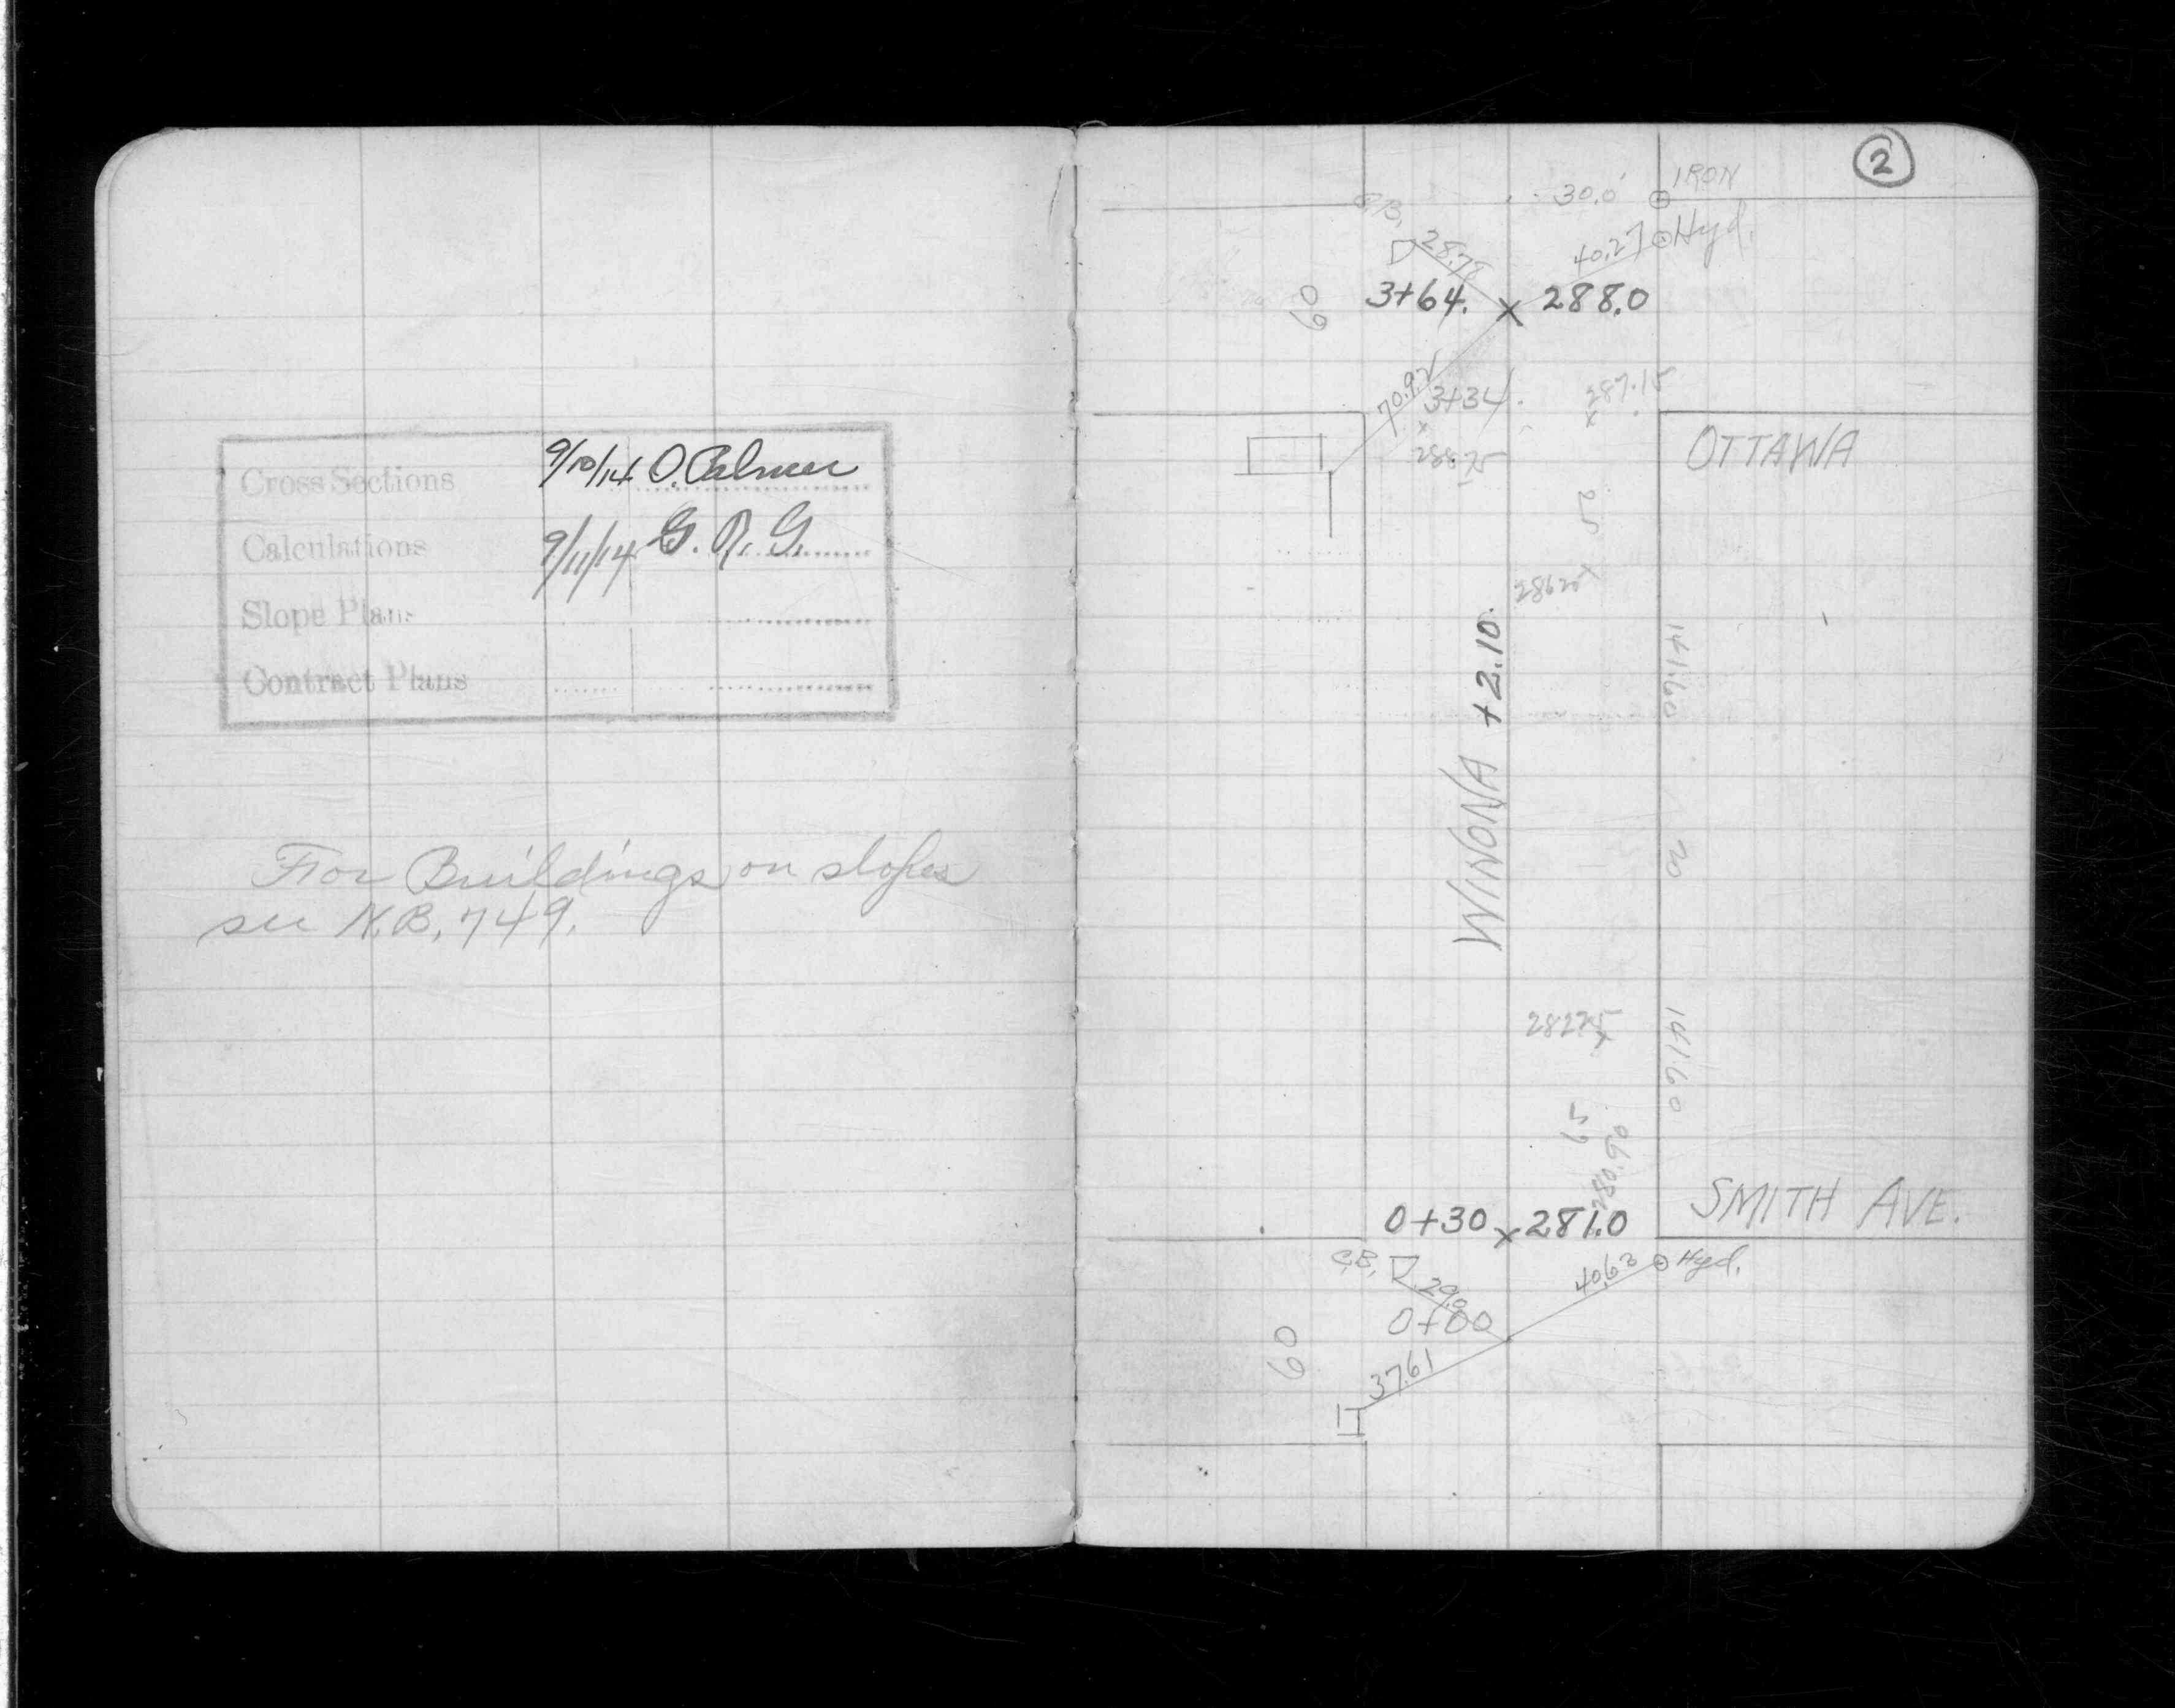 Cross Sections 9/10/14 O. Palmer
Calculations 9/11/14 G. R. G.
Slope Plans
Contract Plans
For Buildings on slopes
see N.B. 749.
2
IRON
30.0'
C.B.
28.78
40.27
Hyd.
60
3+64. x 288.0
70.92
3+34.
287.15
x
x
288.75
OTTAWA
25
286.20 x
WINONA +2.10
141.60
20
28275 x
141.60
280.90
SMITH AVE.
0+30 x 281.0
C.B.
29.8
40.63
Hyd.
0+00
60
37.61